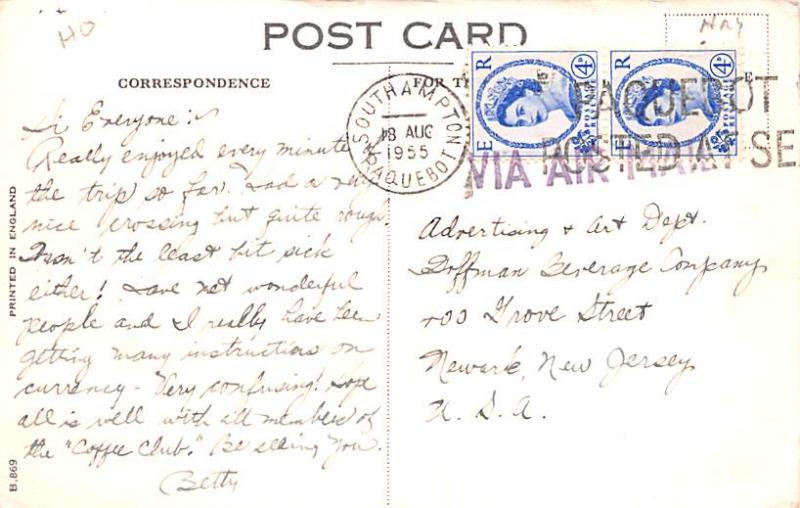 HO
POST CARD
CORRESPONDENCE
FOR TH
E
SOUTHAMPTON
18 AUG
1955
PAQUEBOT
E R
4D
POSTAGE
REVENUE
E R
4D
POSTAGE
REVENUE
PAQUEBOT
POSTED AT SE
VIA AIR MAIL
Hi Everyone:
Really enjoyed every minute of
the trip so far. Had a very
nice crossing but quite rough
Wasn't the least bit sick
either! Have met wonderful
people and I really have been
getting many instructions on
currency - Very confusing! Hope
all is well with all members of
the "Coffee Club." Be seeing You.
Betty
Advertising & Art Dept.
Hoffman Beverage Company
400 Grove Street
Newark, New Jersey
U. S. A.
PRINTED IN ENGLAND
B.869